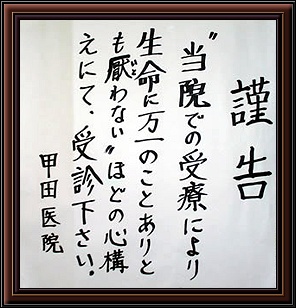 謹告
〝当院での受療により
生命に万一のことありと
も厭わない〟ほどの心構
えにて、受診下さい。
甲田医院